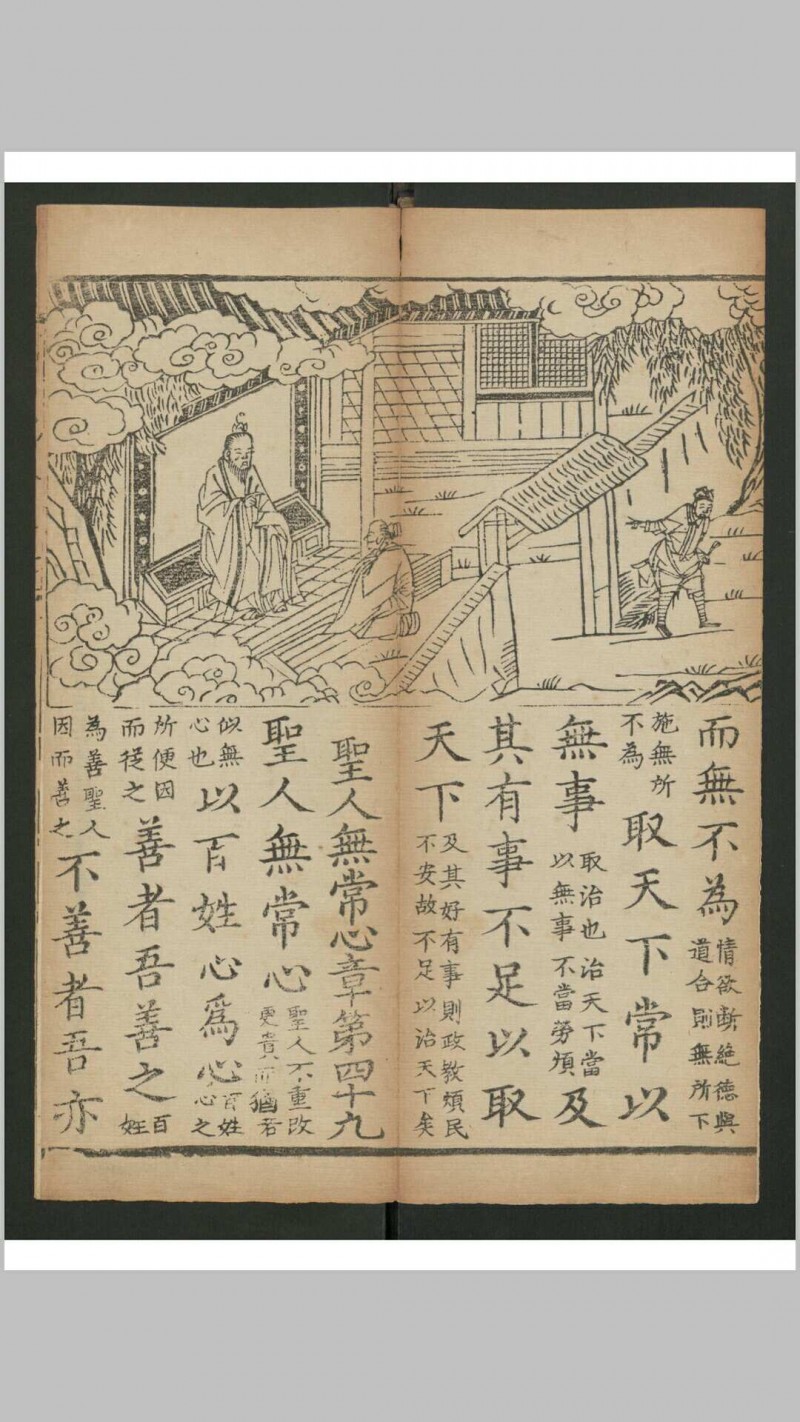 而無不為情欲断絶德與道合則無所下
施無所不為取天下常以
無事取治也治天下當以無事不當勞煩及
其有事不足以取
天下及其好有事則政教煩民不安故不足以治天下矣
聖人無常心章第四十九
聖人無常心聖人不重改更貴猶若
似無心也以百姓心爲心百姓心之
所便因而從之善者吾善之百姓
為善聖人因而善之不善者吾亦